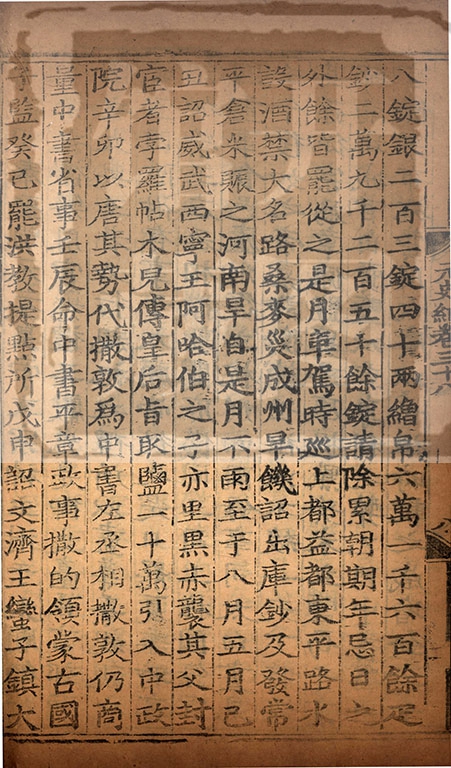 八錠銀二百三錠四十兩繒帛六萬一千六百餘疋
鈔二萬九千二百五十餘錠請除累朝期年忌日之
外餘皆罷從之是月車駕時廵上都益都東平路水
設酒禁大名路桑麥災成州旱饑詔出庫鈔及發常
平倉米賑之河南旱自是月不雨至于八月五月己
丑詔威武西寧王阿哈伯之子亦里黒赤襲其父封
宦者孛羅帖木兒傳皇后旨取鹽一十萬引入中政
院辛卯以唐其勢代撒敦爲中書左丞相撒敦仍商
量中書省事壬辰命中書平章政事撒的領蒙古國
子監癸巳罷洪教提點所戊申詔文濟王蠻子鎮大
元史紀卷三十八
八